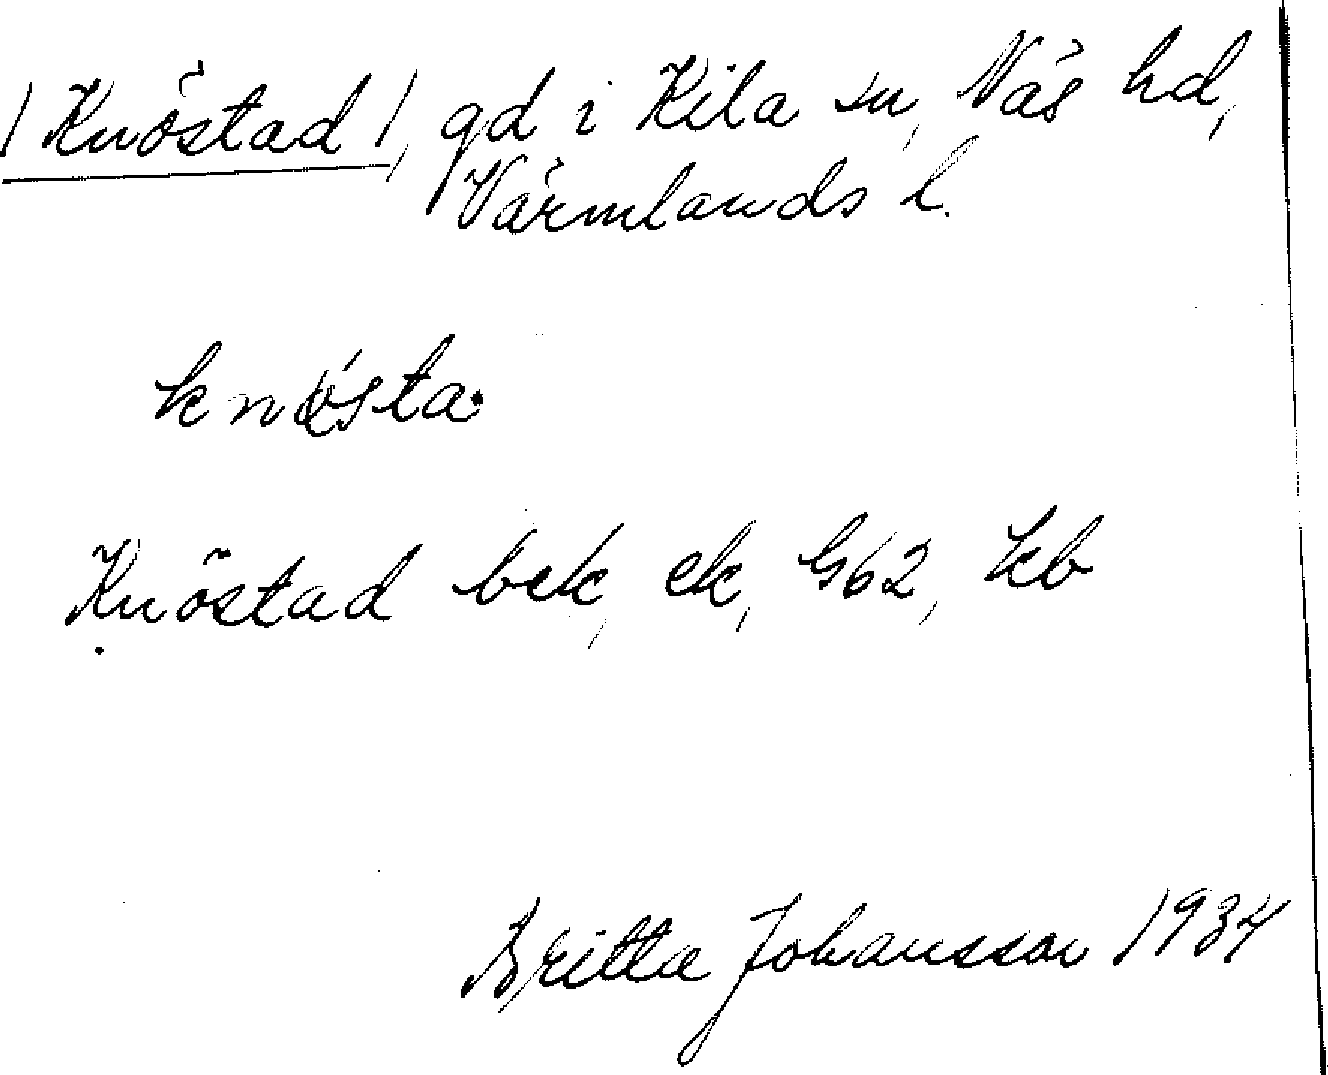 /Knöstad/, gd i Kila sn, Näs hd,
Värmlands l.
Knöstad bek, ek, G62, kb
Britta Johansson 1934